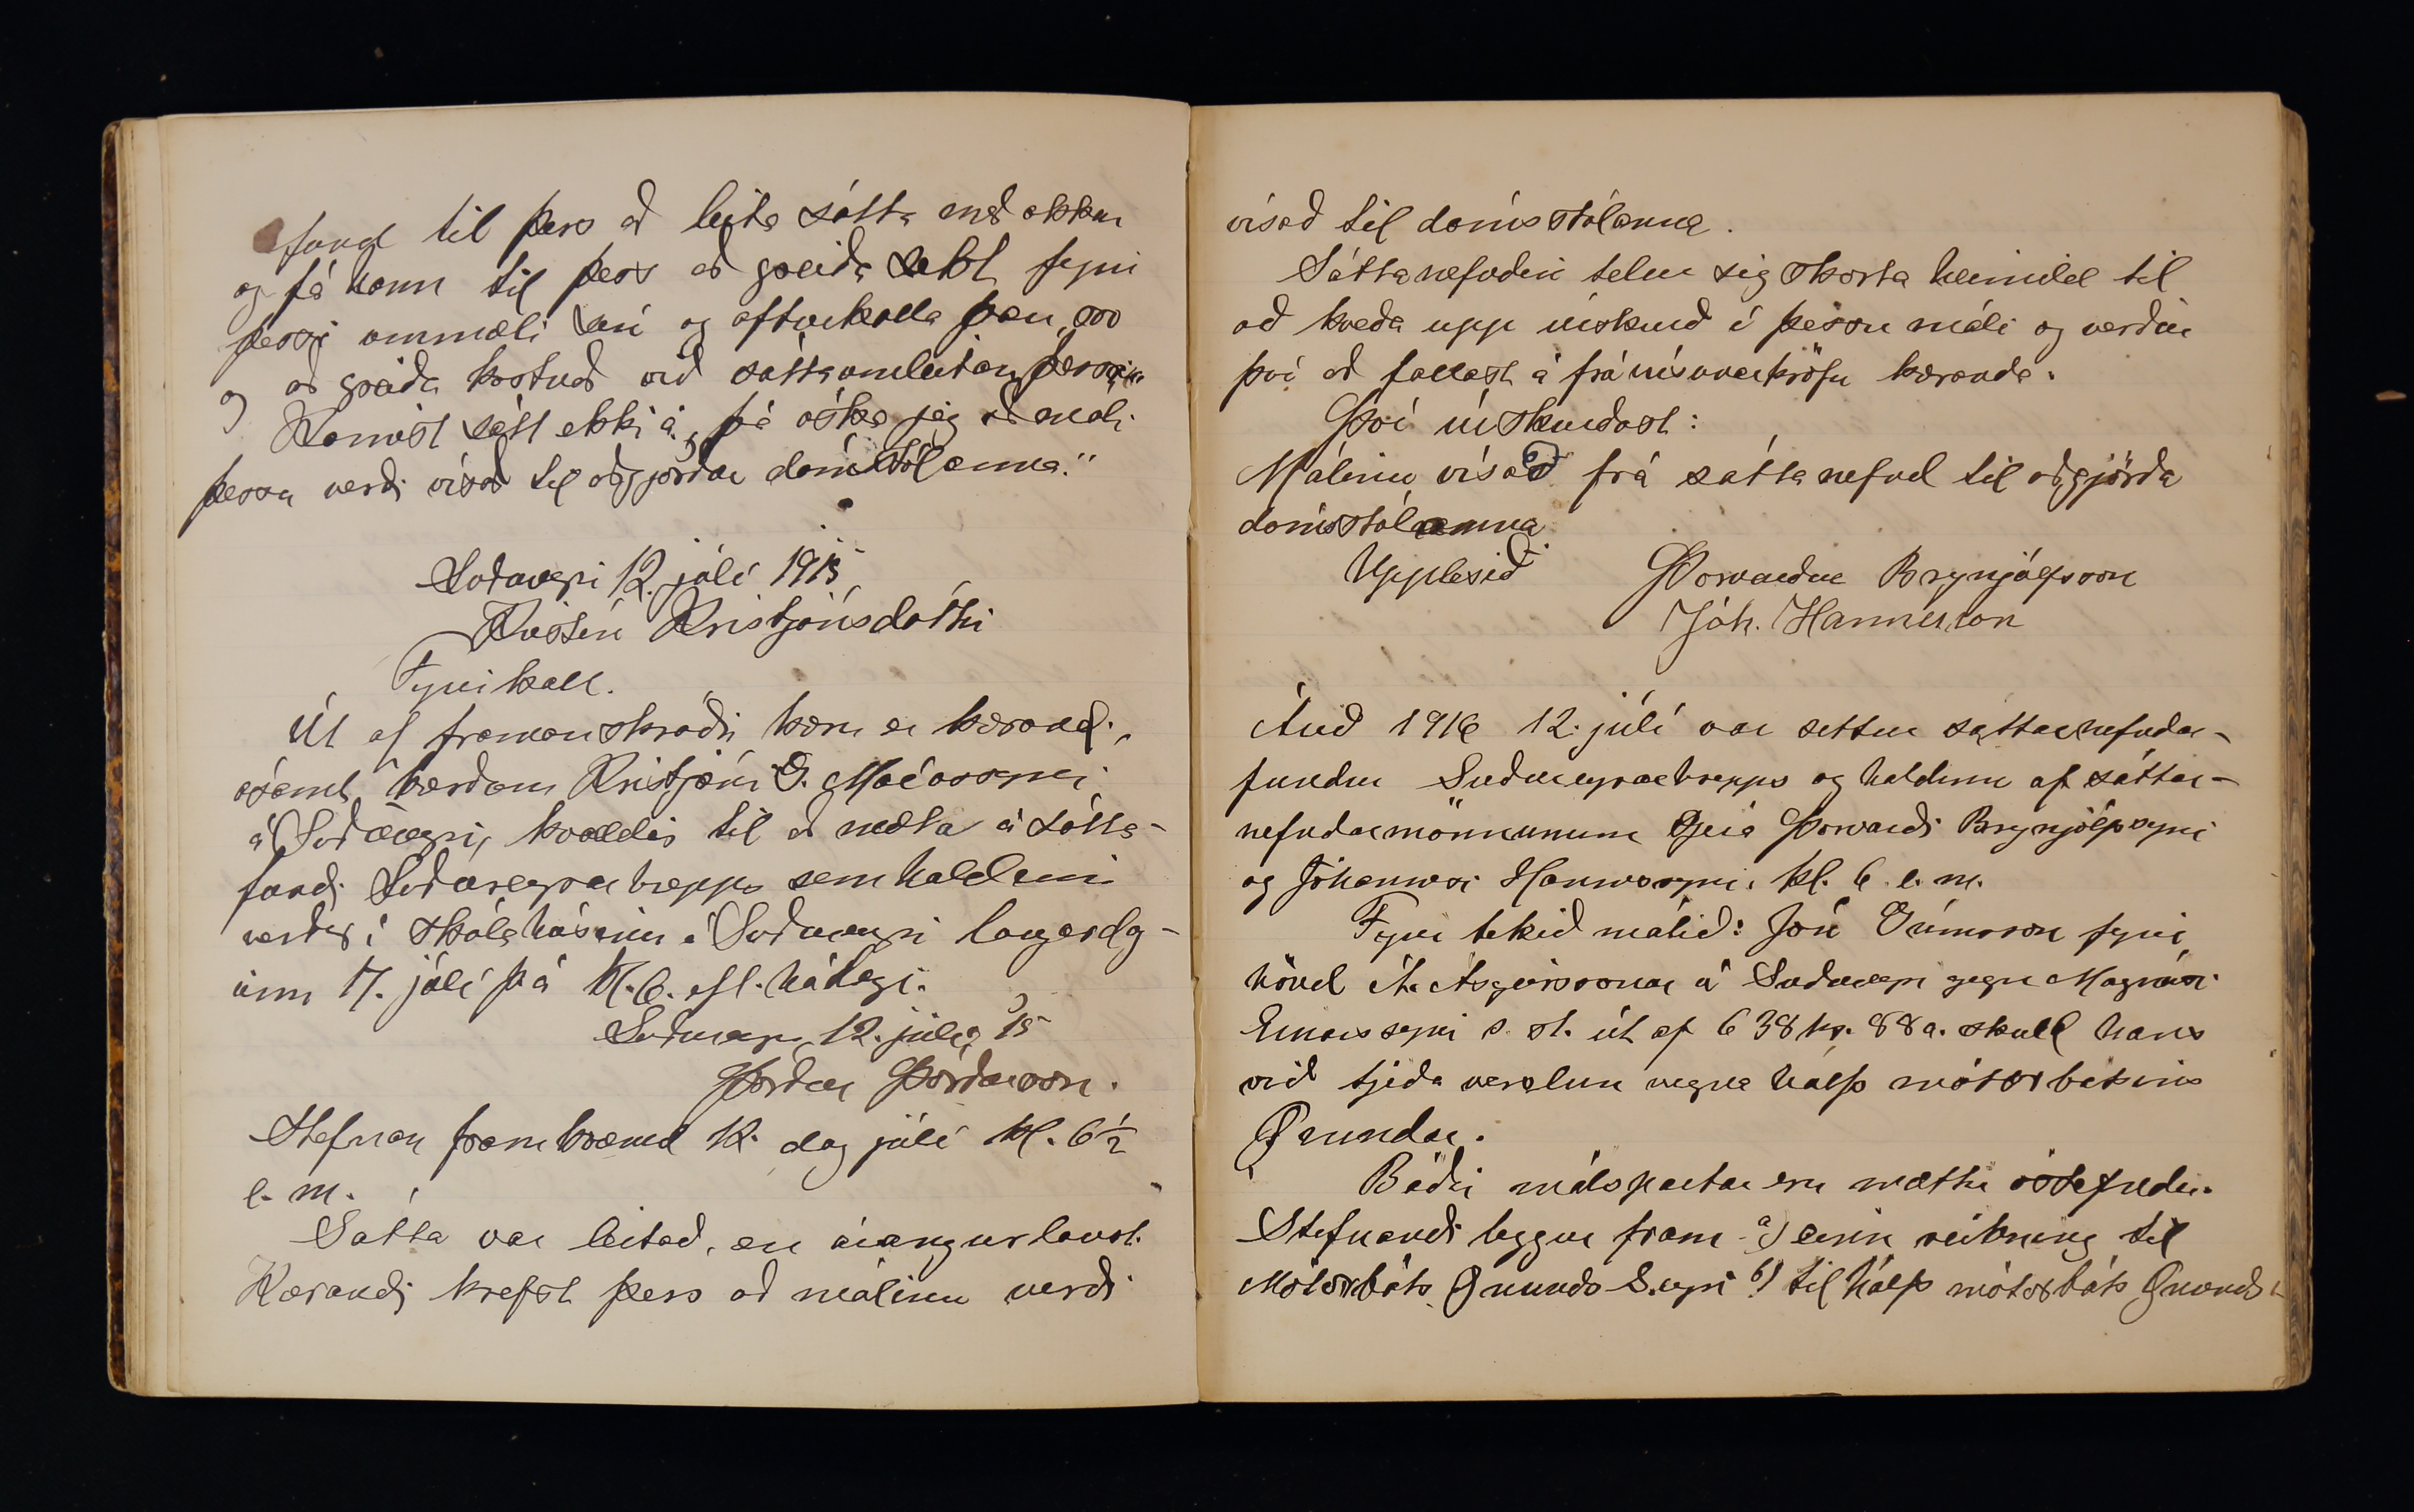 fund til þess að leita sátta með okkur
og fá hann til þess að greiða sekt fyrir
þessi ummæli sín og afturkalla þau, svo
og að greiða kostnað við sáttaumleitan þessa.
Komist sátt ekki á, þá óska jeg að máli
þessu verði vísað til aðgjörðar dómstólanna."
Suðureyri 12. júlí 1915
Kristín Kristjánsdóttir
Fyrirkall.
Út af framanskráðri kæru er kærandi,
ásamt kærðum Kristjáni G. Maríassyni
á Suðureyri, kvaddir til að mæta á sátta-
fundi Suðureyrar hrepps sem haldinn
verður í skólahúsinu á Suðureyri laugardag-
inn 17. júlí þ á kl. 6. eft. hádegi.
Suðureyri, 12. júlí 15
Þórður Þórðarson.
Stefnan framkvæmd 12. dag júlí kl. 6 1/2
e. m.
Sátta var leitað, en árangurlaust.
Kærandi krefst þess að málinu verði
vísað til dómsstólanna.
Sáttanefndin telur sig skorta heimild til
að kveða upp úrskurð í þessu máli og verður
því að fallast á frávísunarkröfu kæranda.
Því úrskurðast:
Málinu vísað frá sáttanefnd til aðgjörða
dómsstólanna
Upplesið Þorvarður Brynjólfsson
Jóh. Hannesson
Árið 1916 12. júlí var settur sáttarnefndar-
fundur Suðureyrarhrepps og haldinn af sáttar-
nefndarmönnunum Þorvarði Brynjólfssyni
og Jóhannesi Hannessyni, kl. 6 e. m.
Fyrir tekið málið: Jón Grímsson fyrir
hönd Á. Ásgeirssonar á Suðureyri gegn Magnúsi
Einarssyni s. st. út af 638 kr. 88 a. skuld hans
við tjeða verslun vegna hálfs mótorbátsins
Grundar.
Báðir málspartar eru mættir óstefndir.
Stefnandi leggur fram a) einn reikning til
Mótorbáts Grunds S.eyri b) til hálfs mótorbáts Grunds